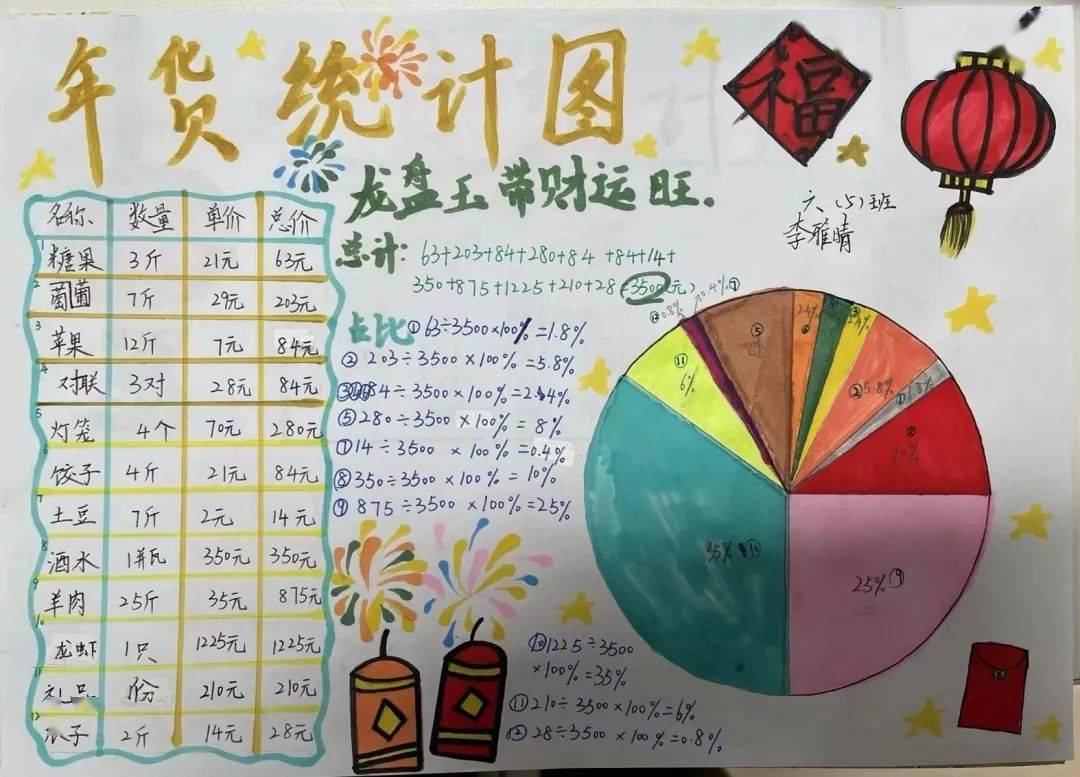 年货统计图
福
龙盘玉带财运旺.
六(5)班
李雅晴
名称 数量 单价 总价
1 糖果 3斤 21元 63元
2 葡萄 7斤 29元 203元
3 苹果 12斤 7元 84元
4 对联 3对 28元 84元
5 灯笼 4个 70元 280元
6 饺子 4斤 21元 84元
7 土豆 7斤 2元 14元
8 酒水 1瓶 350元 350元
9 羊肉 25斤 35元 875元
10 龙虾 1只 1225元 1225元
11 礼品 1份 210元 210元
12 瓜子 2斤 14元 28元
总计: 63+203+84+280+84+84+14+
350+875+1225+210+28=3500(元)
占比 ①63÷3500×100%=1.8%
②203÷3500×100%=5.8%
84÷3500×100%=2.4%
⑤280÷3500×100%=8%
14÷3500×100%=0.4%
⑧350÷3500×100%=10%
⑨875÷3500×100%=25%
⑩1225÷3500
×100%=35%
⑪210÷3500×100%=6%
⑫28÷3500×100%=0.8%
⑫0.8%
0.4%⑦
⑪
6%
⑤
8%
2.4%
2.4%
②5.8%
①1.8%
⑧
10%
35% ⑩
25%⑨